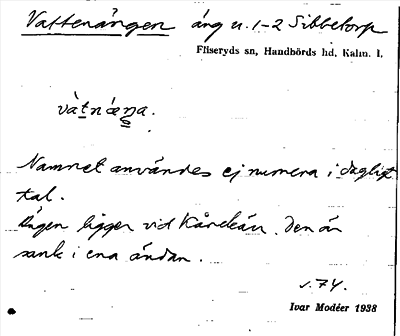 Vattenängen äng u. 1-2 Sibbetorp
Fliseryds sn, Handbörds hd, Kalm. l.
vàtnǽŋa.
Namnet användes ej numera i dagligt
tal.
Ängen ligger vid Den är
sank i ena ändan.
s. 74.
Ivar Modéer 1938